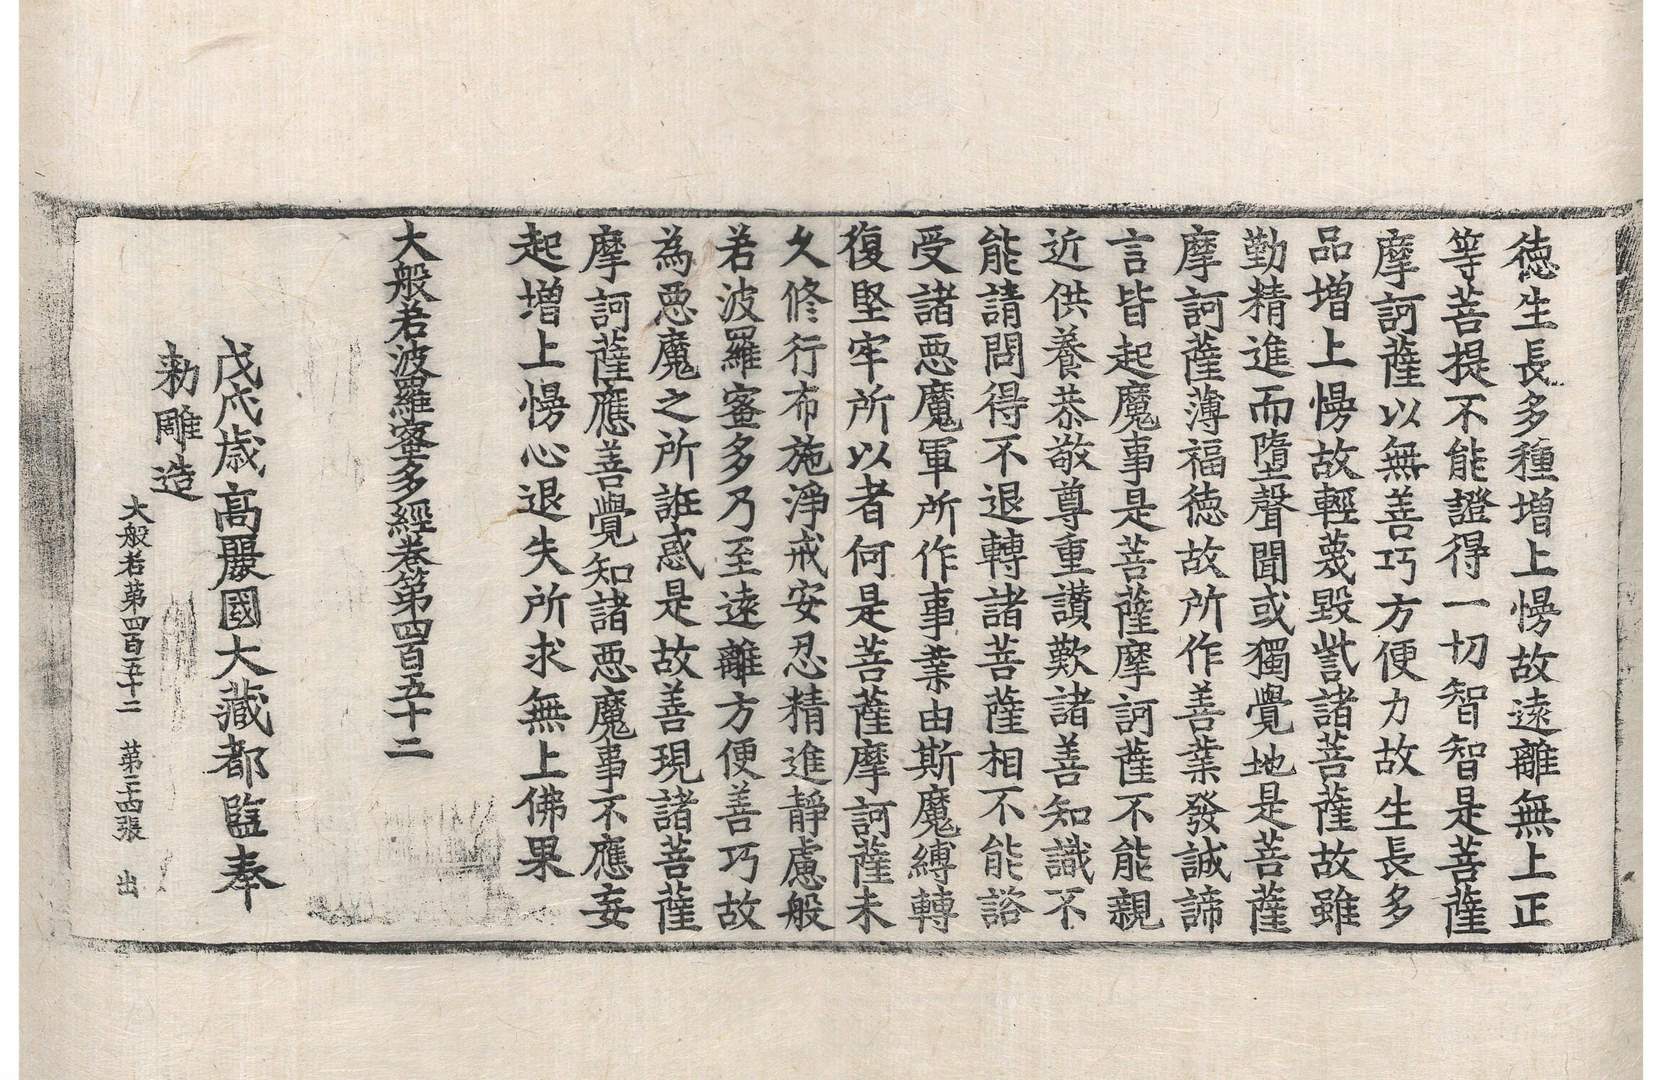 德生長多種增上慢故遠離無上正
等菩提不能證得一切智智是菩薩
摩訶薩以無善巧方便力故生長多
品增上慢故輕蔑毀呰諸菩薩故雖
勤精進而墮聲聞或獨覺地是菩薩
摩訶薩薄福德故所作善業發誠諦
言皆起魔事是菩薩摩訶薩不能親
近供養恭敬尊重讚歎諸善知識不
能請問得不退轉諸菩薩相不能諮
受諸惡魔軍所作事業由斯魔縛轉
復堅牢所以者何是菩薩摩訶薩未
久修行布施淨戒安忍精進靜慮般
若波羅蜜多乃至遠離方便善巧故
為惡魔之所誑惑是故善現諸菩薩
摩訶薩應善覺知諸惡魔事不應妄
起增上慢心退失所求無上佛果
大般若波羅蜜多經卷第四百五十二
戊戌歲高麗國大藏都監奉
勅雕造
大般若第四百五十二 第二十四張 出